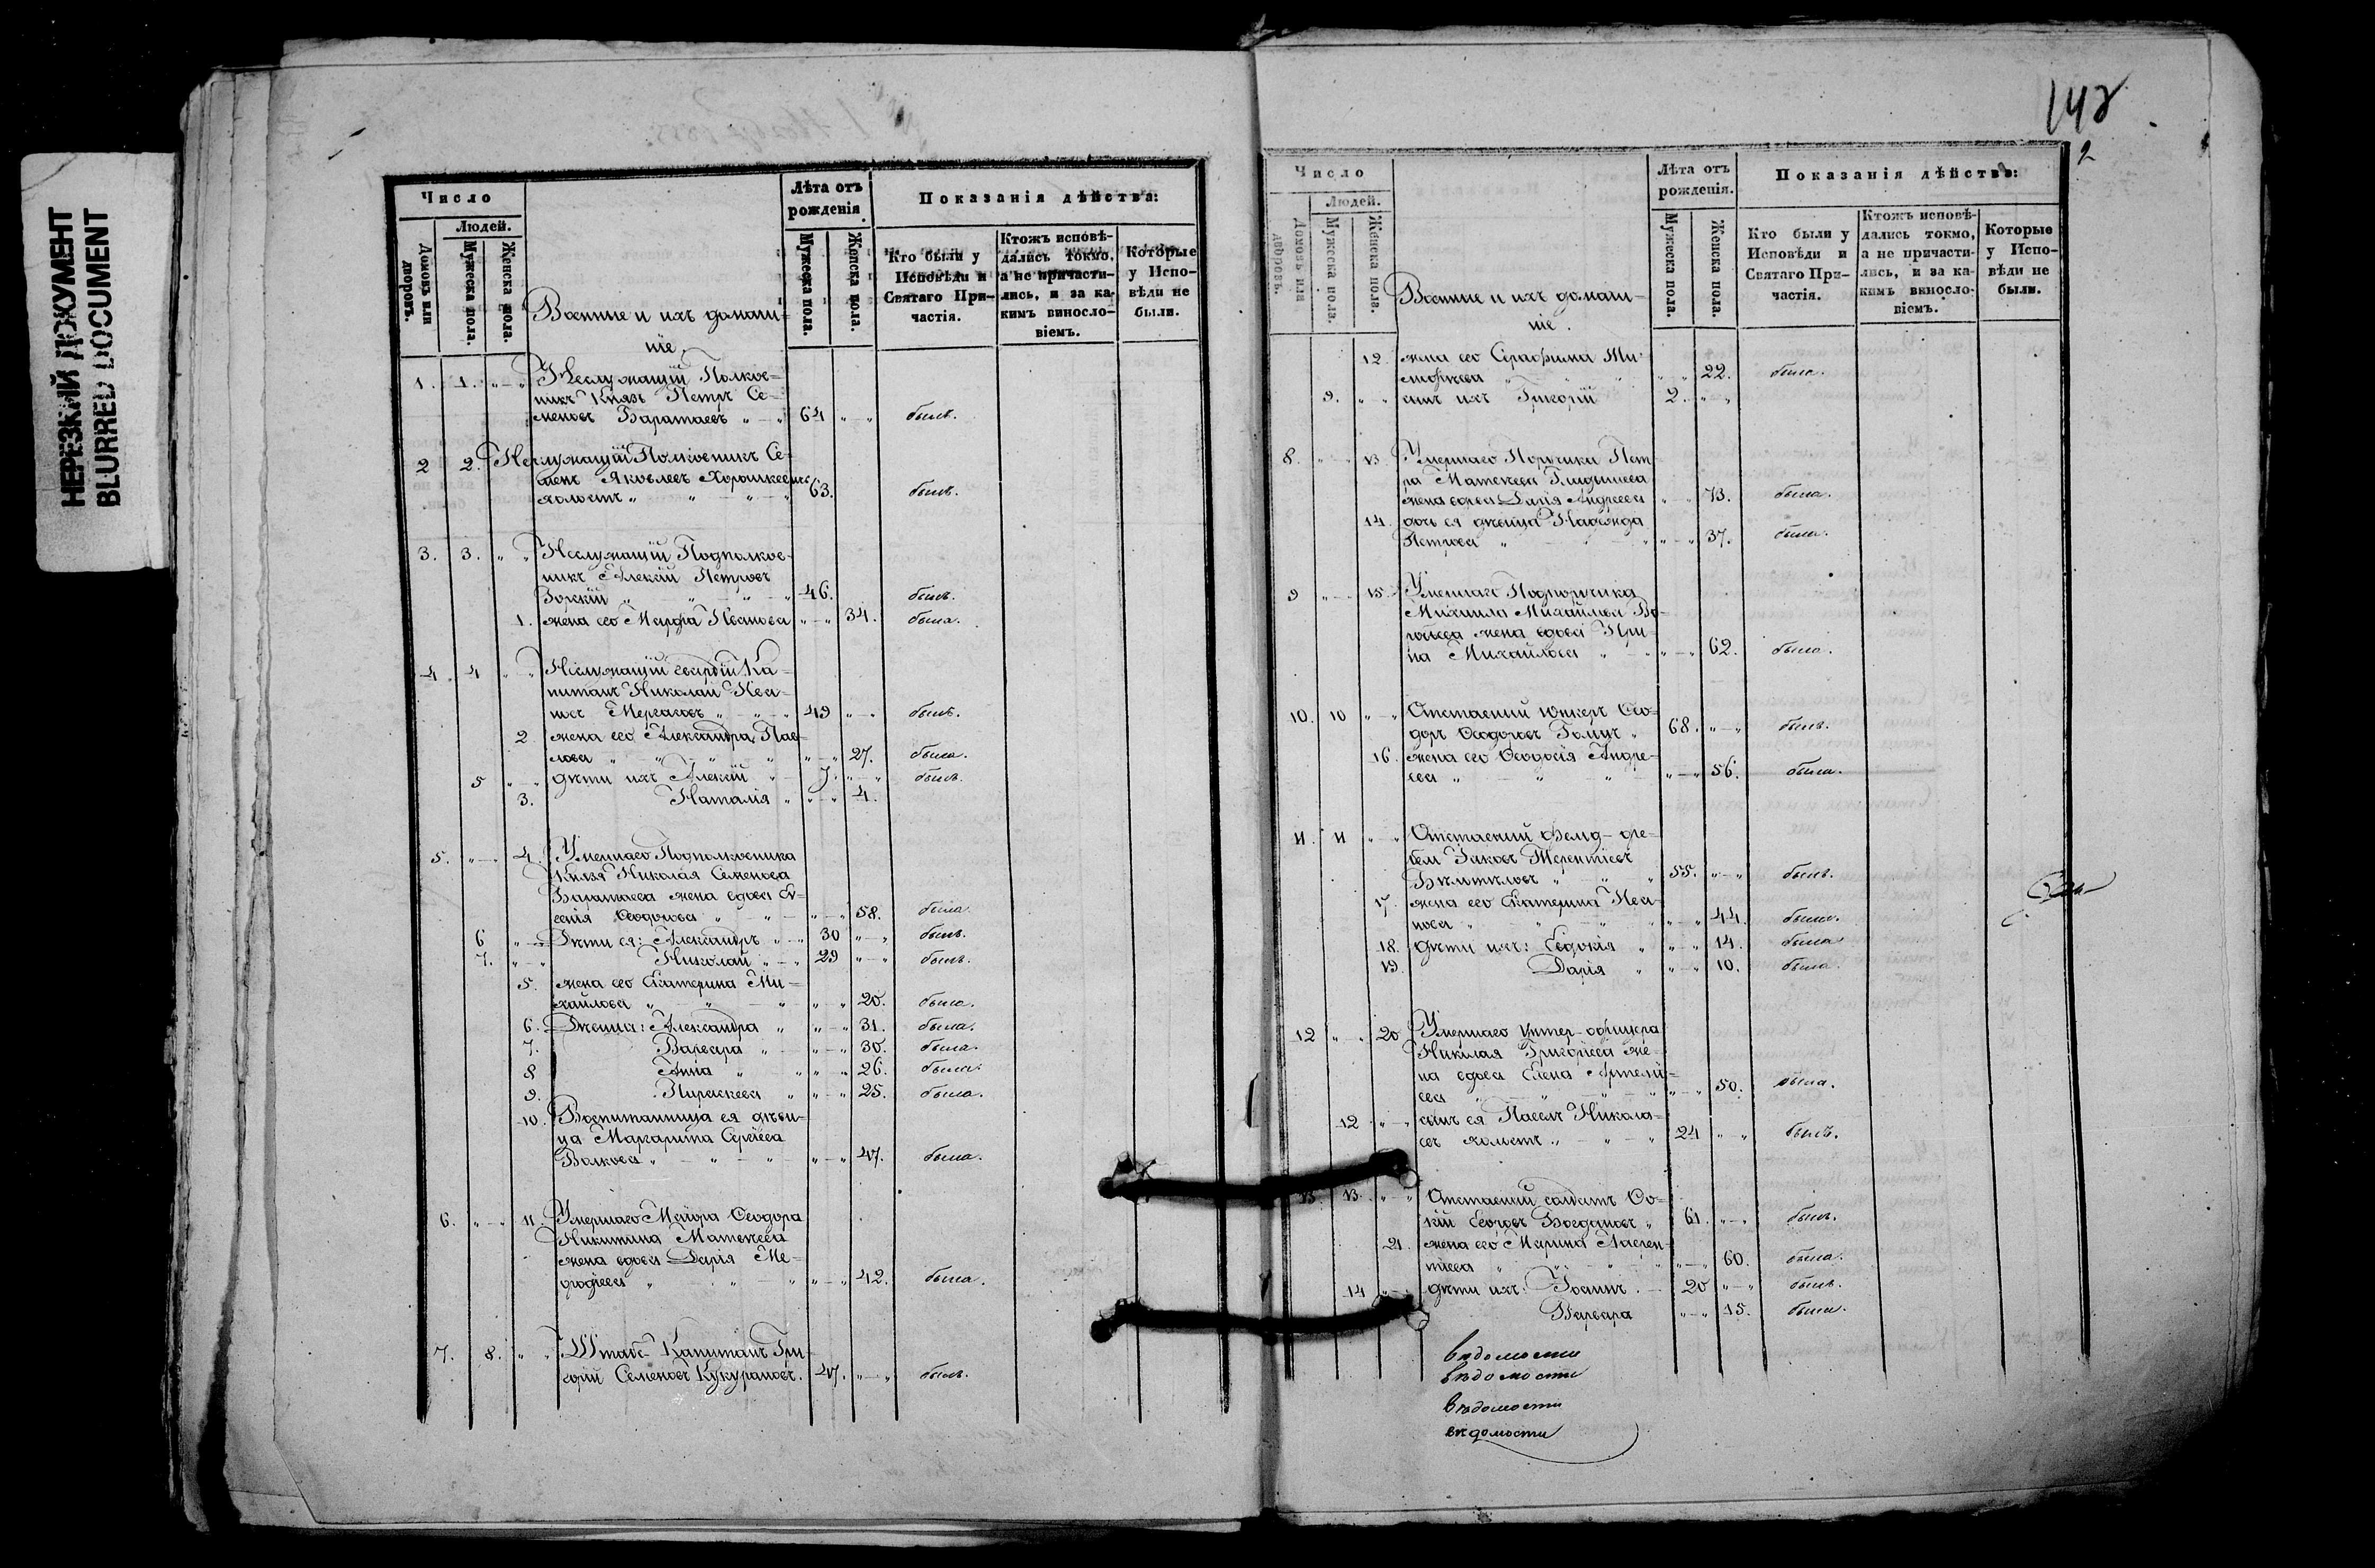 НЕРЕЗКИЙ ДОКУМЕНТ
BLURRED DOCUMENT
Число
Людей.
Домовъ или дворовъ.
Мужеска пола.
Женска пола.
Военные и ихъ домаш-
ніе.
Лѣта отъ рожденія
Мужеска пола.
Женска пола.
Показанія дѣйства:
Кто были у Исповѣди и Святаго При-частія.
Ктожъ исповѣ-дались токмо, а не причасти-лись, и за ка-кимъ винословіемъ.
Которые у Испо-вѣди не были.
1. 1. " — " Неслужащій Полков-
никъ Князь Петръ Се-
меновъ Баратаевъ " — " 64 " — " былъ.
2 2. Неслужащій Полковникъ Се-
менъ Яковлевъ
холостъ " " " 63. былъ.
3. 3. " " Неслужащій Подполков-
никъ Алексій Петровъ
" " " 46. былъ.
1. жена его Марфа Иванова " — " 34. была.
4. 4 " " Неслужащій гвардіи Ка-
питанъ Николай Ива-
новъ " — " 49 " — " былъ.
2 жена его Александра Пав-
лова " " " " — " 27. была.
5 " — " дѣти ихъ Алексій " 7. " — " былъ.
3. Наталія " " — " 4.
5. " — " 4. Умершаго Подполковника
Князя Николая Семенова
Баратаева жена вдова Ев-
генія Ѳеодорова " " " — " 58. была.
6 " — " Дѣти ея: Александръ " — " 30 " — " былъ.
7. " — " Николай " — " 29 " — " былъ.
5. жена его Екатерина Ми-
хайлова " " " " — " 20. была.
6. Дѣвицы: Александра " " — " 31. была.
7. Варвара " " — " 30. была.
8 Анна " " " — " 26. была.
9. Параскева " " — " 25. была.
10. Воспитанница ея дѣви-
ца Маргарита Сергіева
Волкова " " " " — " 47. была.
6. " — " 11. Умершаго Маіора Ѳеодора
Никитина Матвѣева
жена вдова Дарія Ме-
фодіева " " " " — " 42. была.
7. 8. " " Штабс-Капитанъ Гри-
горій Семеновъ Кукурановъ. 47. " — " былъ.
142
2
Число
Людей.
Домовъ или дворовъ.
Мужеска пола.
Женска пола.
Военные и ихъ домаш-
ніе.
Лѣта отъ рожденія.
Мужеска пола.
Женска пола.
Показанія дѣйства:
Кто были у Исповѣди и Святаго При-частія.
Ктожъ исповѣ-дались токмо, а не причасти-лись, и за ка-кимъ винословіемъ.
Которые у Испо-вѣди не были.
12. жена его Серафима Ти-
моѳеева " " " " — " 22. была.
9. " " сынъ ихъ Григорій 2. " — "
8. " — " 13 Умершаго Поручика Пет-
ра Матвѣева
жена вдова Дарія Андреева " — " 73. была.
14. дочь ея дѣвица Надежда
Петрова " " " " — " 37. была.
9 " — " 15. Умершаго Подпоручика
Михаила Михайлова
жена вдова Ири-
на Михайлова " " " — " 62. была.
10. 10 " — " Отставный юнкеръ Ѳео-
доръ Ѳеодоровъ " 68. " — " былъ.
16. жена его Ѳеодосія Андре-
ева " " " " — " 56. была.
11. 11 " — " Отставный фельд-фе-
бель Іаковъ Терентіевъ
" " " 55. " — " былъ.
17. жена его Екатерина Ива-
нова " " " " — " 44. была.
18. дѣти ихъ: Евдокія " " — " 14. была
19. Дарія " " — " 10. была.
12 " " 20 Умершаго унтер-офицера
Николая Григоріева же-
на вдова Елена
" " " " — " 50. была.
12 " — " сынъ ея Павелъ Никола-
евъ холостъ " " " 24 " — " былъ.
13. 13. " — " Отставный солдатъ
Богдановъ " 61. " — " былъ.
21. жена его Марина Лаврен-
тіева " " " " — " 60. была.
14 " — " дѣти ихъ: Іоаннъ. — 20 " — " былъ.
Варвара " — " 15. была.
вѣдомости
вѣдомости
вѣдомости
вѣдомости